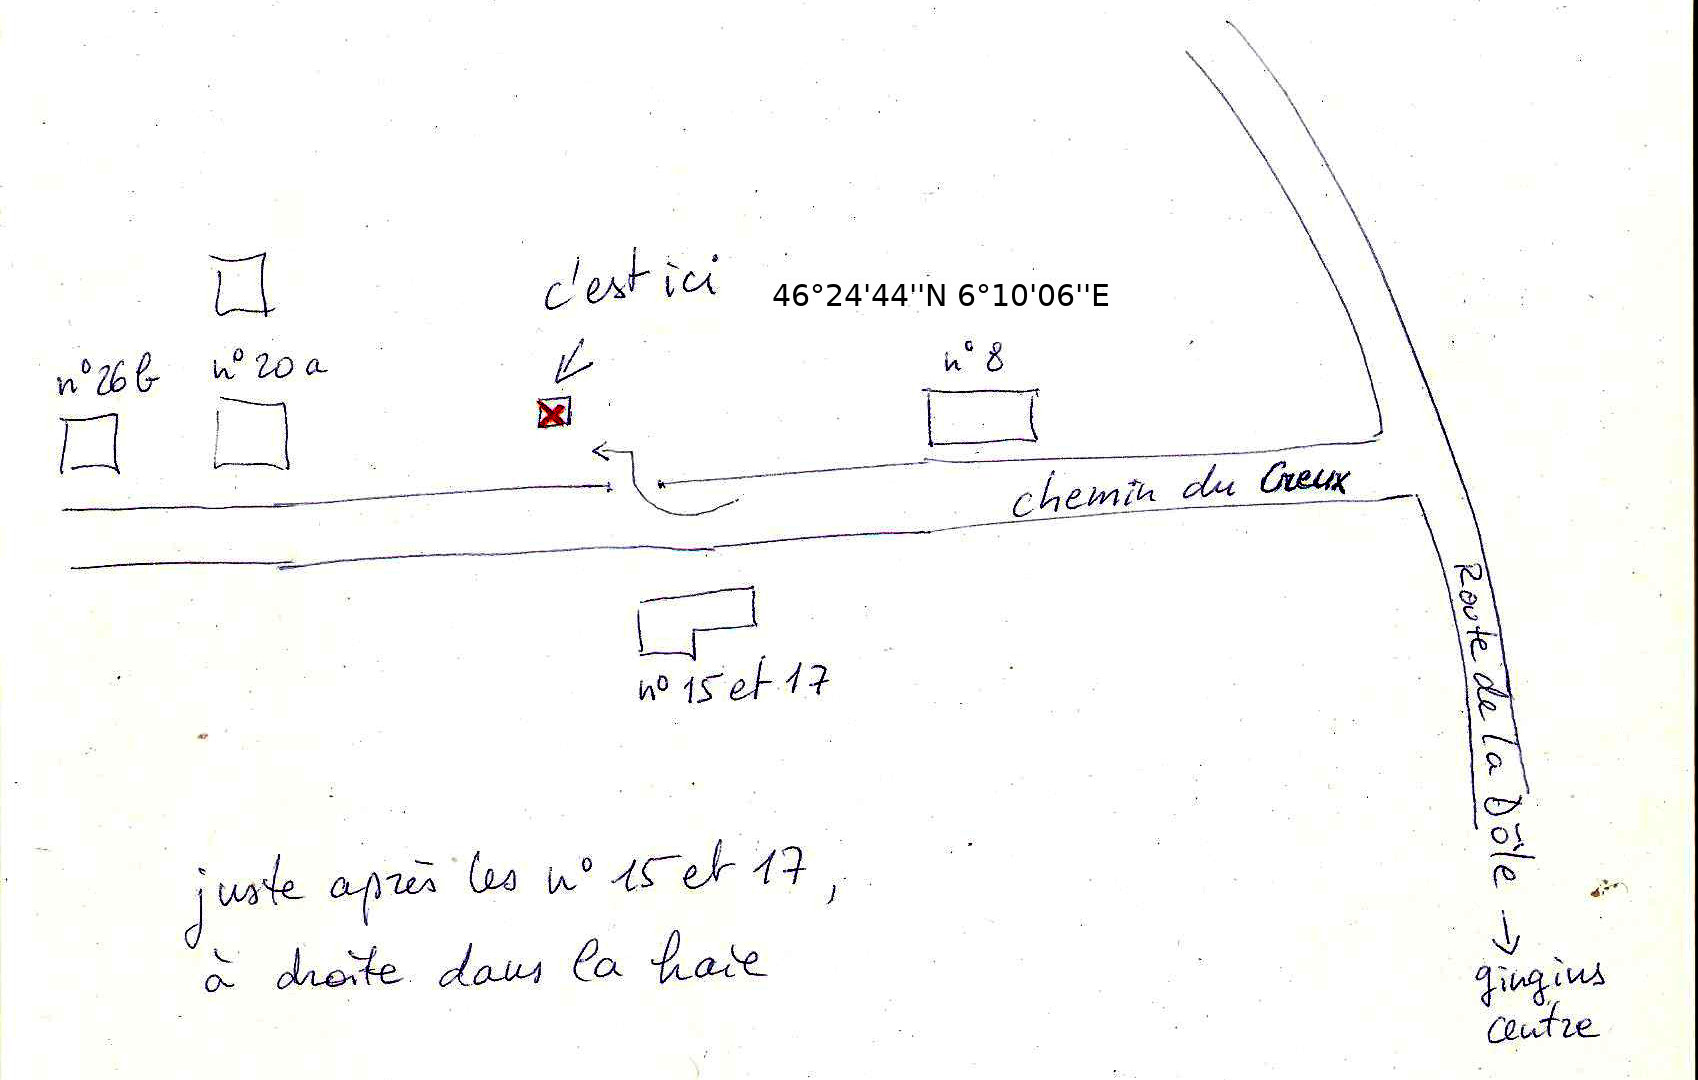 c'est ici
46°24'44''N 6°10'06''E
n° 8
n° 26b
n° 20a
chemin du Creux
Route de la Dôle →
gingins
centre
n° 15 et 17
juste après les n° 15 et 17,
à droite dans la haie